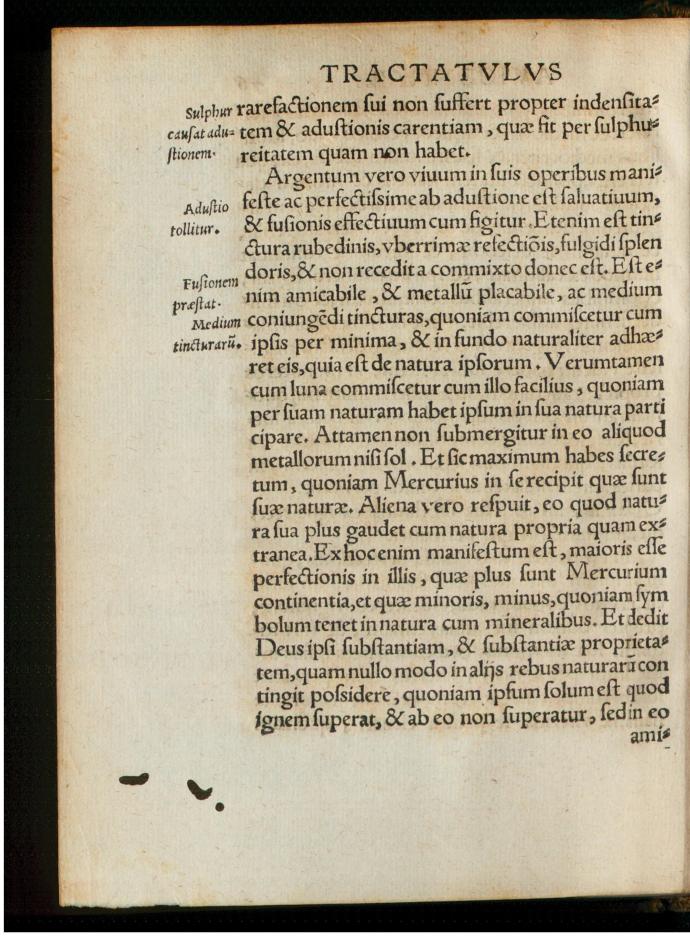 TRACTATVLVS
Sulphur
causat adu⸗
stionem.
rarefactionem sui non suffert propter indensita⸗
tem & adustionis carentiam, quæ fit per sulphu⸗
reitatem quam non habet.
Argentum vero viuum in suis operibus mani⸗
Adustio
tollitur.
feste ac perfectissime ab adustione est saluatiuum,
& fusionis effectiuum cum figitur. Etenim est tin⸗
ctura rubedinis, vberrimæ refectiõis, fulgidi splen
doris, & non recedit a commixto donec est. Est e⸗
Fusionem
præstat.
Medium
tincturarũ.
nim amicabile, & metallũ placabile, ac medium
coniungẽdi tincturas, quoniam commiscetur cum
ipsis per minima, & in fundo naturaliter adhæ⸗
ret eis, quia est de natura ipsorum. Verumtamen
cum luna commiscetur cum illo facilius, quoniam
per suam naturam habet ipsum in sua natura parti
cipare. Attamen non submergitur in eo aliquod
metallorum nisi sol. Et sic maximum habes secre⸗
tum, quoniam Mercurius in se recipit quæ sunt
suæ naturæ. Aliena vero respuit, eo quod natu⸗
ra sua plus gaudet cum natura propria quam ex⸗
tranea. Ex hoc enim manifestum est, maioris esse
perfectionis in illis, quæ plus sunt Mercurium
continentia, et quæ minoris, minus, quoniam sym
bolum tenet in natura cum mineralibus. Et dedit
Deus ipsi substantiam, & substantiæ proprieta⸗
tem, quam nullo modo in alijs rebus naturarũ con
tingit possidere, quoniam ipsum solum est quod
ignem superat, & ab eo non superatur, sed in eo
ami⸗